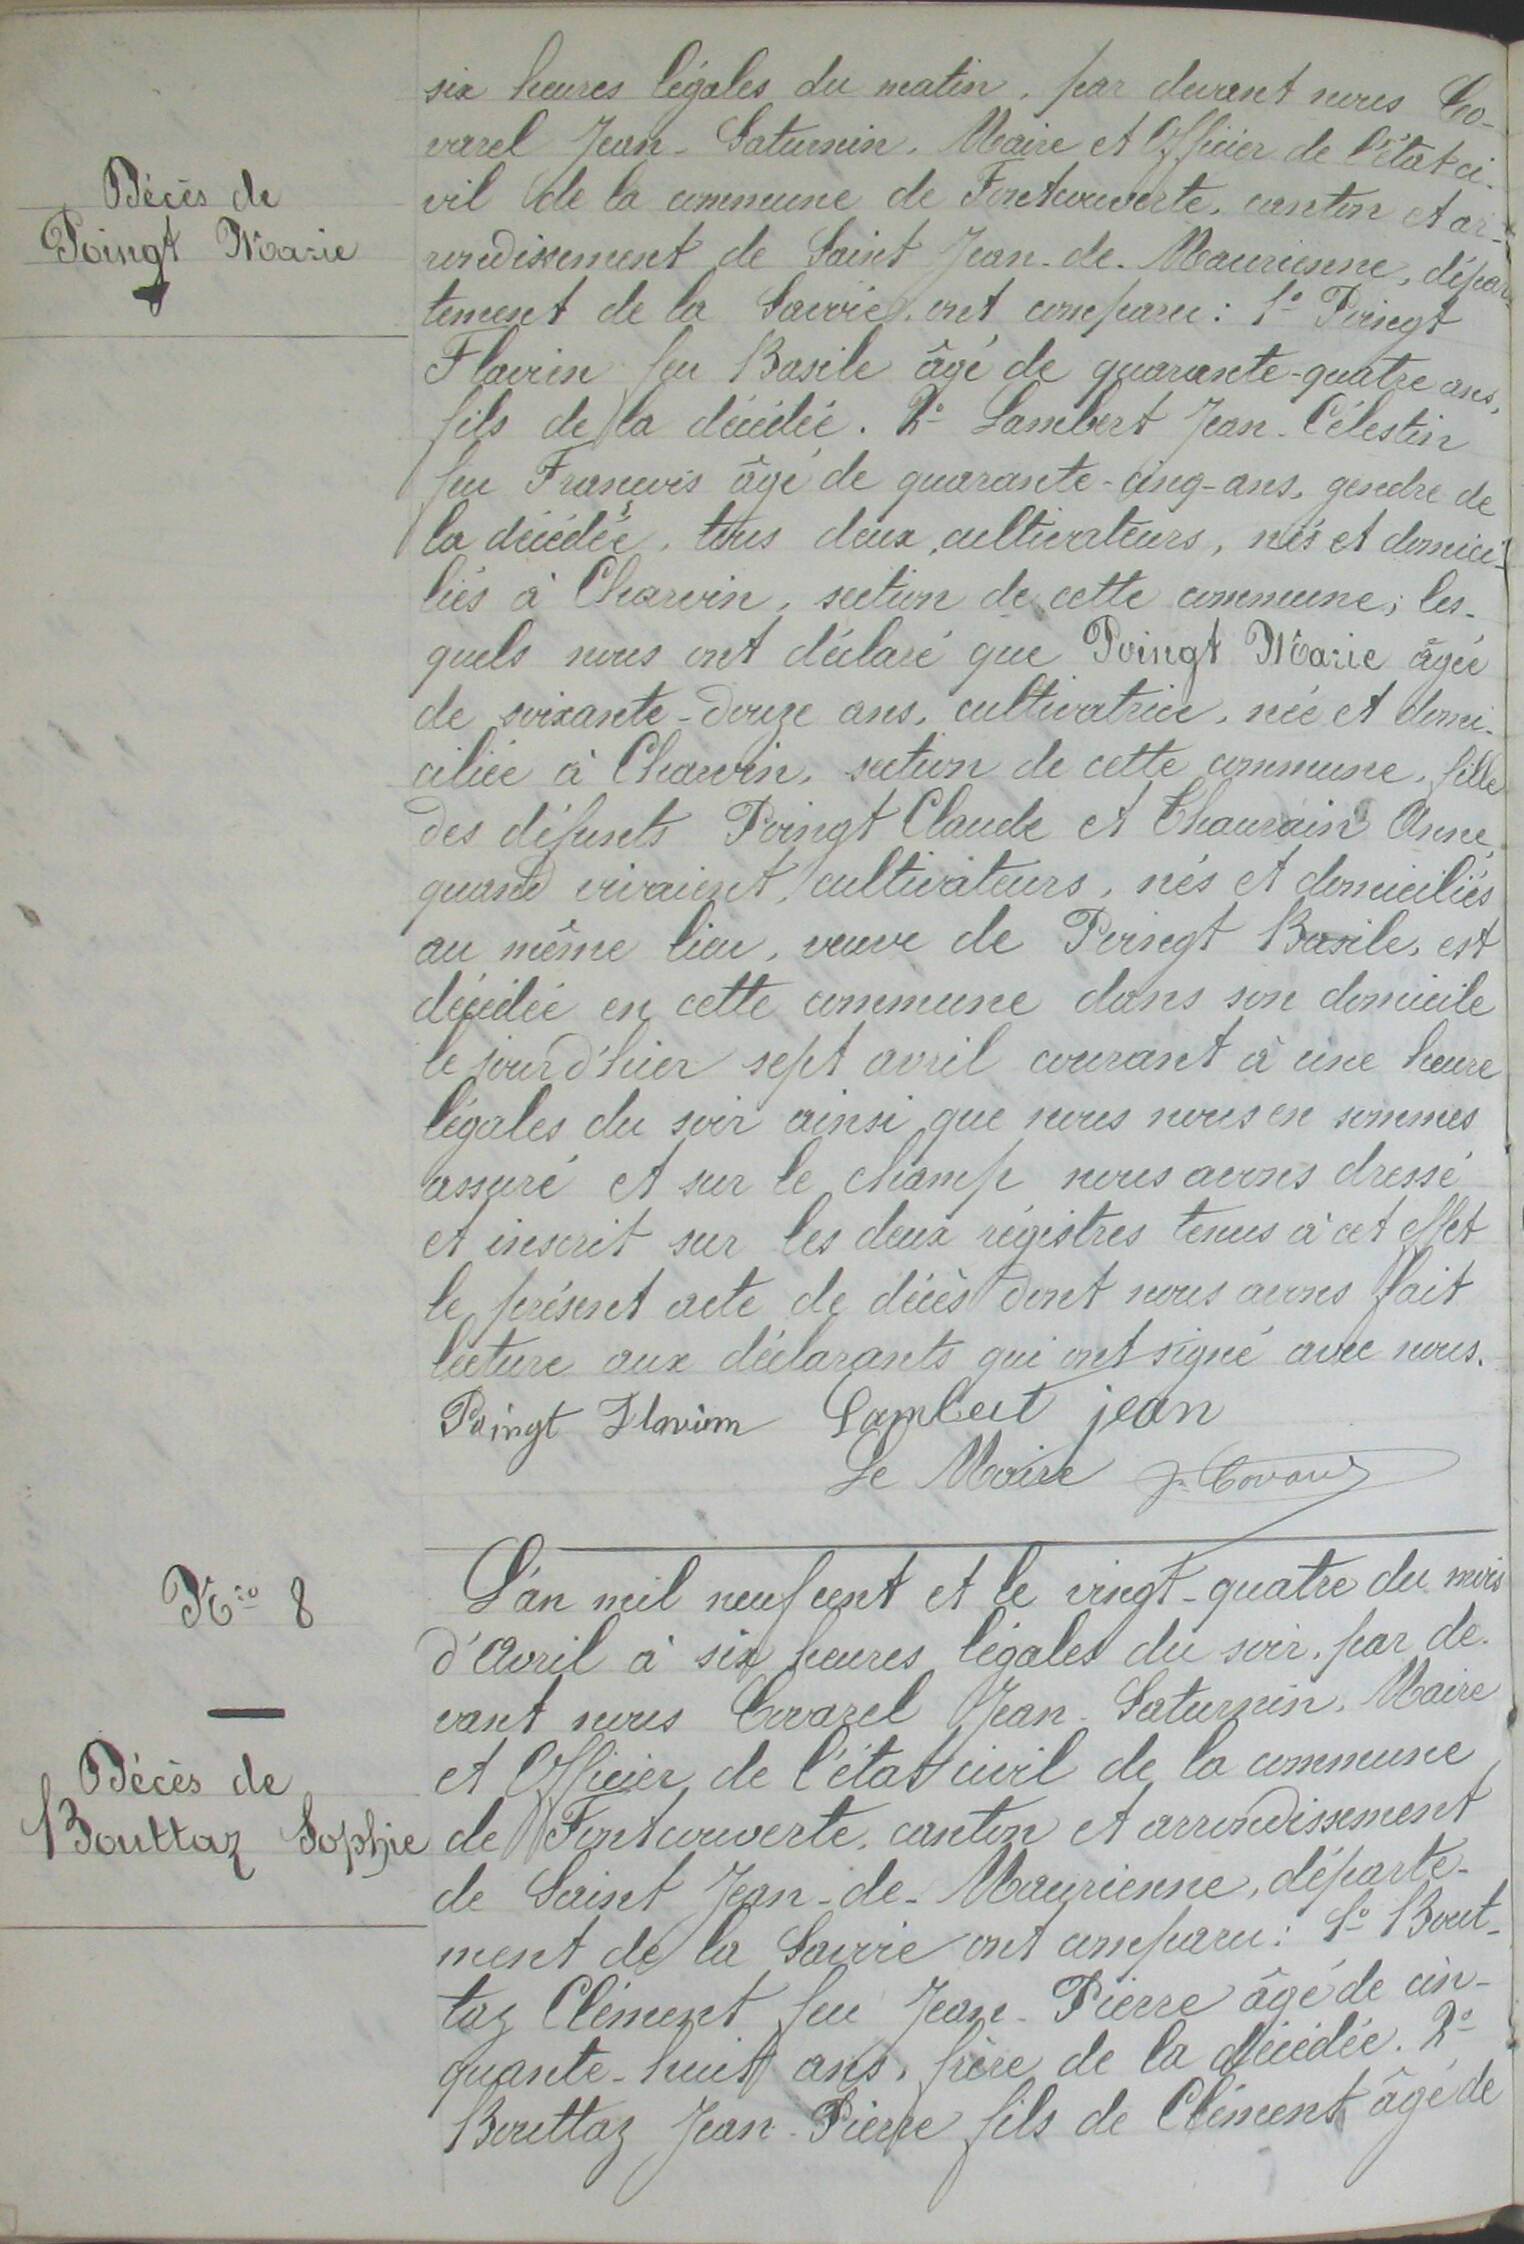 Décès de
Poingt Marie
six heures légales du matin, par devant nous Co-
varel Jean-Saturnin, Maire et Officier de l'état ci-
vil de la commune de Fontcouverte, canton et ar-
rondissement de Saint Jean-de-Maurienne, dépar-
tement de la Savoie, ont comparu : 1° Poingt
Flavien feu Basile âgé de quarante-quatre ans,
fils de la décédée. 2° Lambert Jean-Célestin
feu François âgé de quarante-cinq-ans, gendre de
la décédée, tous deux cultivateurs, nés et domici-
liés à Charvin, section de cette commune ; les-
quels nous ont déclaré que Poingt Marie âgée
de soixante-douze ans, cultivatrice, née et domi-
ciliée à Charvin, section de cette commune, fille
des défunts Poingt Claude et Anne
quand vivaient, cultivateurs, nés et domiciliés
au même lieu, veuve de Poingt Basile, est
décédée en cette commune dans son domicile
le jour d'hier sept avril courant à une heure
légales du soir ainsi que nous nous en sommes
assuré et sur le champ nous avons dressé
et inscrit sur les deux régistres tenus à cet effet
le présent acte de décès dont nous avons fait
lecture aux déclarants qui ont signé avec nous.
Poingt Flavien Lambert jean
Le Maire J. Covarel
N° 8
Décès de
Bouttaz Sophie
L'an mil neuf cent et le vingt-quatre du mois
d'Avril à six heures légales du soir, par de-
vant nous Covarel Jean-Saturnin, Maire
et Officier de l'état civil de la commune
de Fontcouverte, canton et arrondissement
de Saint Jean-de-Maurienne, départe-
ment de la Savoie ont comparu : 1° Bout-
taz Clément feu Jean-Pierre âgé de cin-
quante-huit ans, frère de la décédée. 2°
Bouttaz Jean-Pierre fils de Clément âgé de